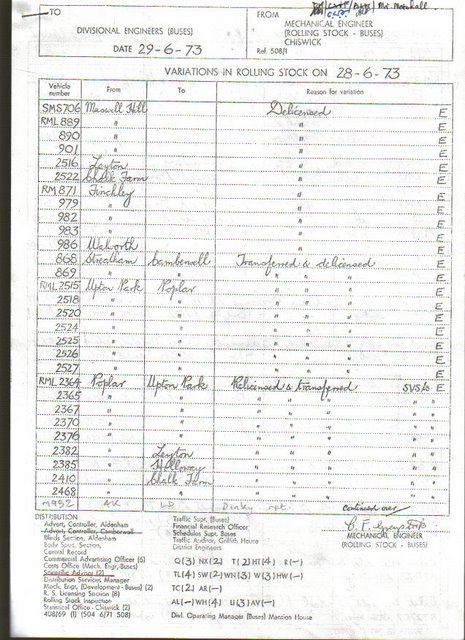 TO
FROM
Mr. Marshall.
DIVISIONAL ENGINEERS (BUSES)
MECHANICAL ENGINEER
(ROLLING STOCK - BUSES)
CHISWICK
DATE 29-6-73
Ref. 508/1
VARIATIONS IN ROLLING STOCK ON 28-6-73
Vehicle number From To Reason for variation
SMS706 Muswell Hill Delicensed E
RML 889 " " E
890 " " E
901 " " E
2516 Leyton " E
2522 Chalk Farm " E
RM 871 Finchley " E
979 " " E
982 " " E
983 " " E
986 Walworth " E
868 Streatham Camberwell Transferred & delicensed E
869 " " " " " E
RML 2515 Upton Park Poplar " " " E
2518 " " " " " E
2520 " " " " " E
2524 " " " " " E
2525 " " " " " E
2526 " " " " " E
2527 " " " " " E
RML 2364 Poplar Upton Park Relicensed & transferred SVS/s E
2365 " " " " " " "
2367 " " " " " " "
2370 " " " " " " "
2376 " " " " " " "
2382 " Leyton " " " " "
2385 " Holloway " " " " "
2410 " Chalk Farm " " " " "
2468 " " " " " " "
continued over
DISTRIBUTION
Advert, Controller, Aldenham
Advert, Controller, Camberwell
Blinds Section, Aldenham
Body Spec. Section,
Central Record
Commercial Advertising Officer (6)
Costs Office (Mech. Engr.-Buses)
Scientific Advisor (2)
Distribution Services Manager
Mech. Engr. (Development - Buses) (2)
R. S. Licensing Section (8)
Rolling Stock Inspection
Statistical Office - Chiswick (2)
408/69 (1) (504 6/71 508)
Traffic Supt. (Buses)
Financial Research Officer
Schedules Supt. Buses
Traffic Auditor, Griffith House
District Engineers
Q(3) NX(2) T(2) HT(4) R(-)
TL(4) SW(2) WN(3) W(3) HW(-)
TC(2) AR(-)
AL(-) WH(4) U(3) AV(-)
Divl. Operating Manager (Buses) Mansion House
MECHANICAL ENGINEER
(ROLLING STOCK - BUSES)